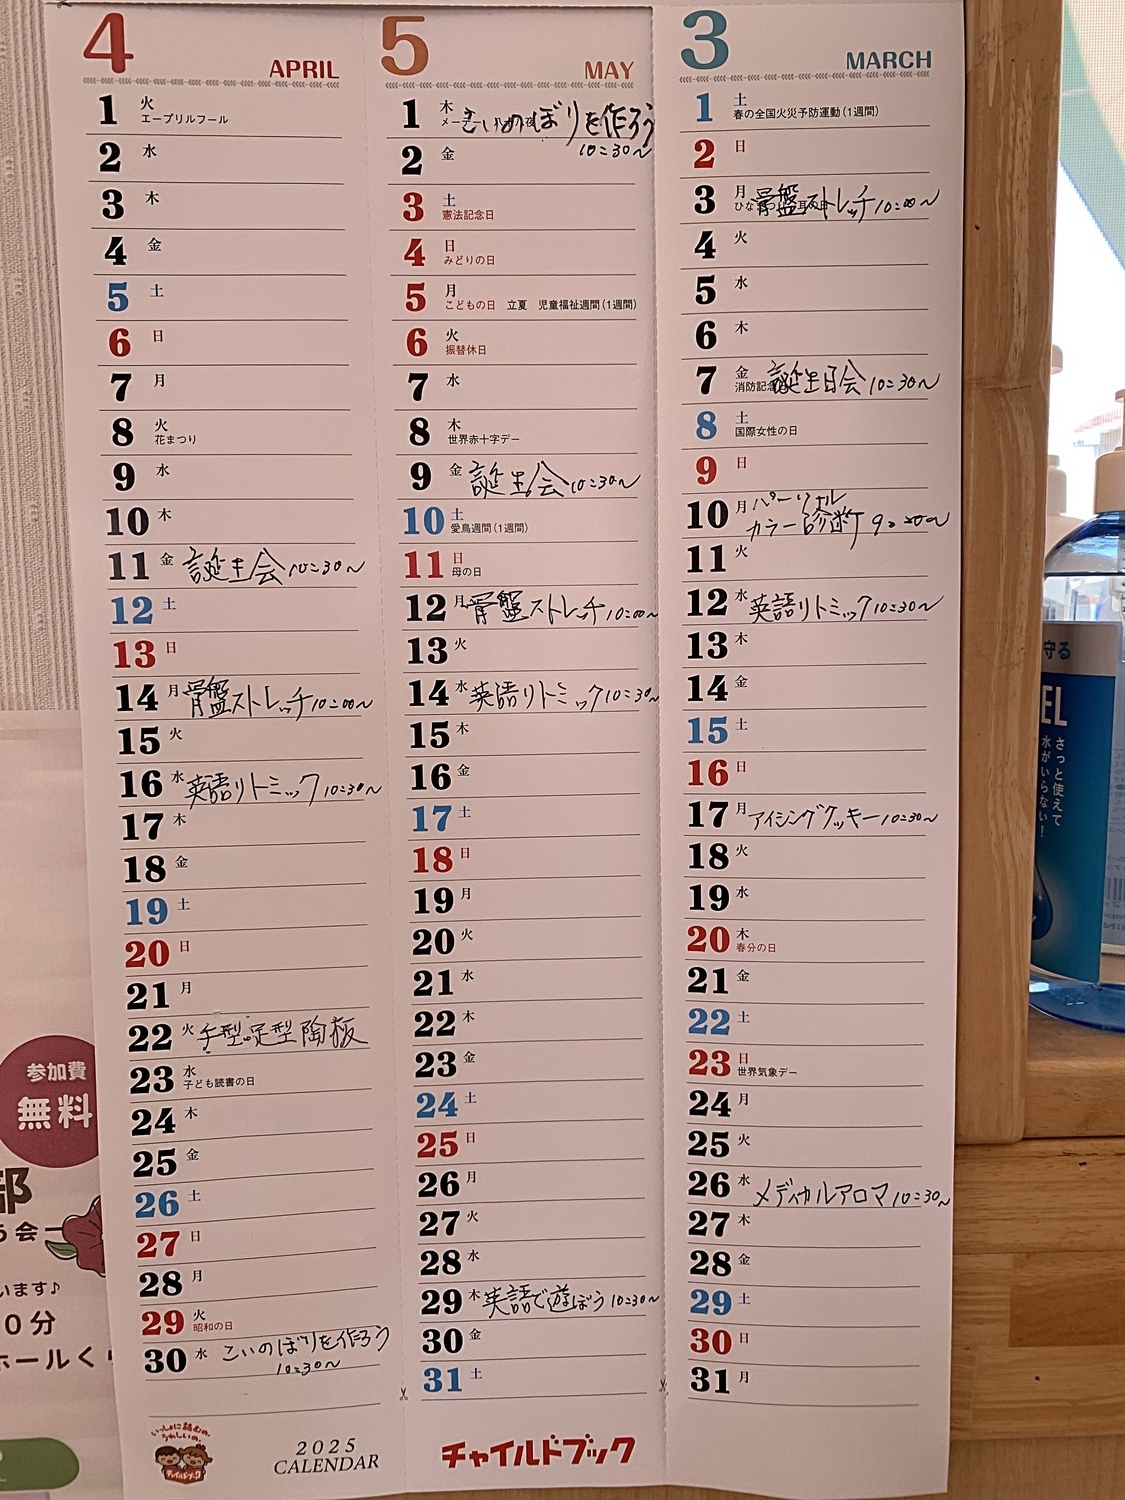 4 APRIL
1 火 エープリルフール
2 水
3 木
4 金
5 土
6 日
7 月
8 火 花まつり
9 水
10 木
11 金 誕生会 10:30~
12 土
13 日
14 月 骨盤ストレッチ 10:00~
15 火
16 水 英語リトミック 10:30~
17 木
18 金
19 土
20 日
21 月
22 火 手型・足型 陶板
23 水 子ども読書の日
24 木
25 金
26 土
27 日
28 月
29 火 昭和の日
30 水 こいのぼりを作ろう
10:30~
いっしょに読むの、
うれしいの。
チャイルドブック
2025
CALENDAR
5 MAY
1 木 こいのぼりを作ろう
メーデー
10:30~
2 金
3 土 憲法記念日
4 日 みどりの日
5 月 こどもの日 立夏 児童福祉週間(1週間)
6 火 振替休日
7 水
8 木 世界赤十字デー
9 金 誕生会 10:30~
10 土 愛鳥週間(1週間)
11 日 母の日
12 月 骨盤ストレッチ 10:00~
13 火
14 水 英語リトミック 10:30~
15 木
16 金
17 土
18 日
19 月
20 火
21 水
22 木
23 金
24 土
25 日
26 月
27 火
28 水
29 木 英語で遊ぼう 10:30~
30 金
31 土
チャイルドブック
3 MARCH
1 土 春の全国火災予防運動(1週間)
2 日
3 月 骨盤ストレッチ 10:00~
4 火
5 水
6 木
7 金 誕生日会 10:30~
消防記念
8 土 国際女性の日
9 日
10 月 パーソナル
カラー診断
11 火
12 水 英語リトミック 10:30~
13 木
14 金
15 土
16 日
17 月 アイシングクッキー 10:30~
18 火
19 水
20 木 春分の日
21 金
22 土
23 日 世界気象デー
24 月
25 火
26 水 メディカルアロマ 10:30~
27 木
28 金
29 土
30 日
31 月
参加費
無料
部
会
います♪
0分
ホールく
守る
EL
さっと使えて
水がいらない!